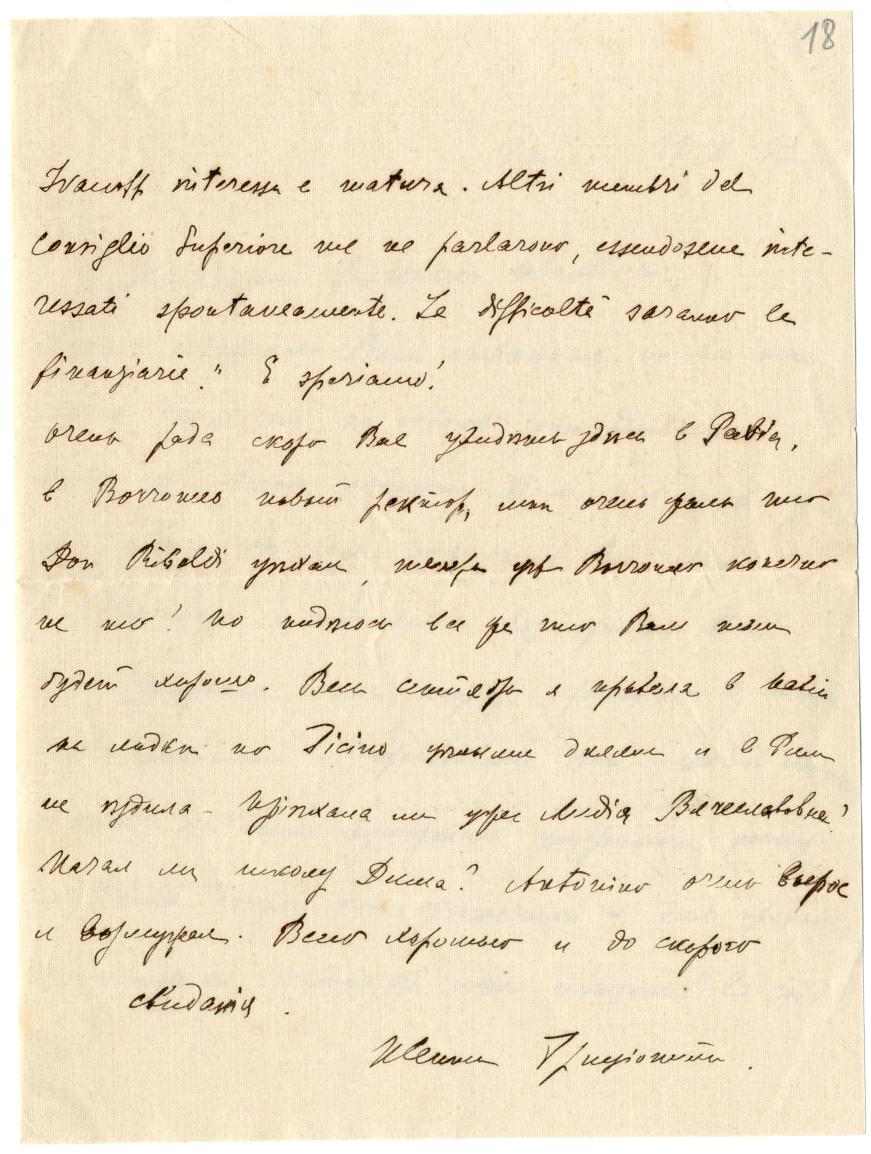 18
Ivanoff interessa e matura. Altri membri del
Consiglio Superiore me ne parlarono, essendosene inte-
ressati spontaneamente. Le difficoltà saranno le
finanziarie." E speriamo!
очень рада скоро Вас увидѣть здѣсь в Pavia,
в Borromeo новый ректор, мнѣ очень жаль что
Don Riboldi уѣхал, теперь уж Borromeo конечно
не то! но надѣюсь все же что Вам там
будет хорошо. Весь сентябрь я провела в Pavia
на лодкѣ по Ticino цѣлыми днями и в Рим
не ѣздила – Пріѣхала ли уже Лидія Вячеславовна?
Начал ли школу Дима? Antonino очень вырос
и возмужал. Всего хорошего и до скорого
свиданія.